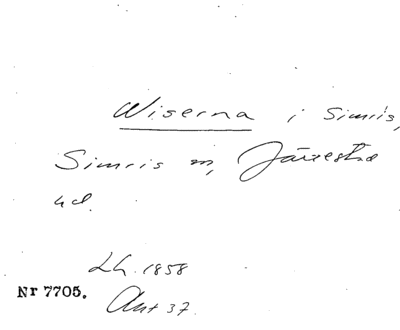 Wiserna i Simris,
Simris sn, Järrestad
hd.
Lh. 1858
Nr 7705.
Ant 37.